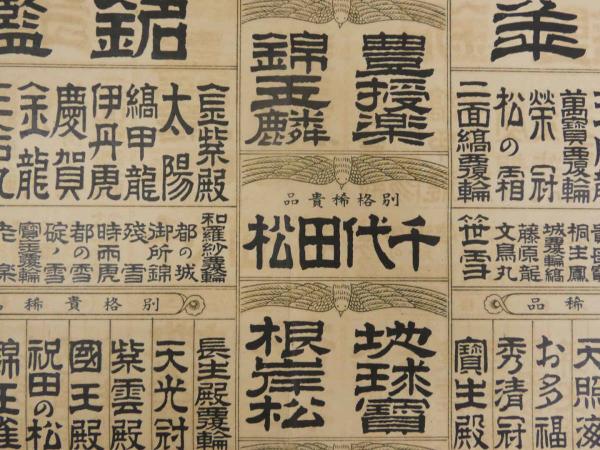 銘
豊授楽
錦玉麟
萬寶覆輪
榮冠
松の霜
二面縞覆輪
紫殿
太陽
縞甲龍
伊丹虎
慶賀
金龍
別格稀貴品
千代田松
桐生鳳
城覆輪縞
藤原龍
文鳥丸
笹雪
和羅紗覆輪
都の城
御所錦
残雪
時雨虎
都の雪
碇ノ雪
寶玉覆輪
稀品
別格貴稀
地球寶
根岸松
天照
お多福
秀清冠
寶生殿
長生殿覆輪
天光冠
紫雲殿
國王殿
祝田の松